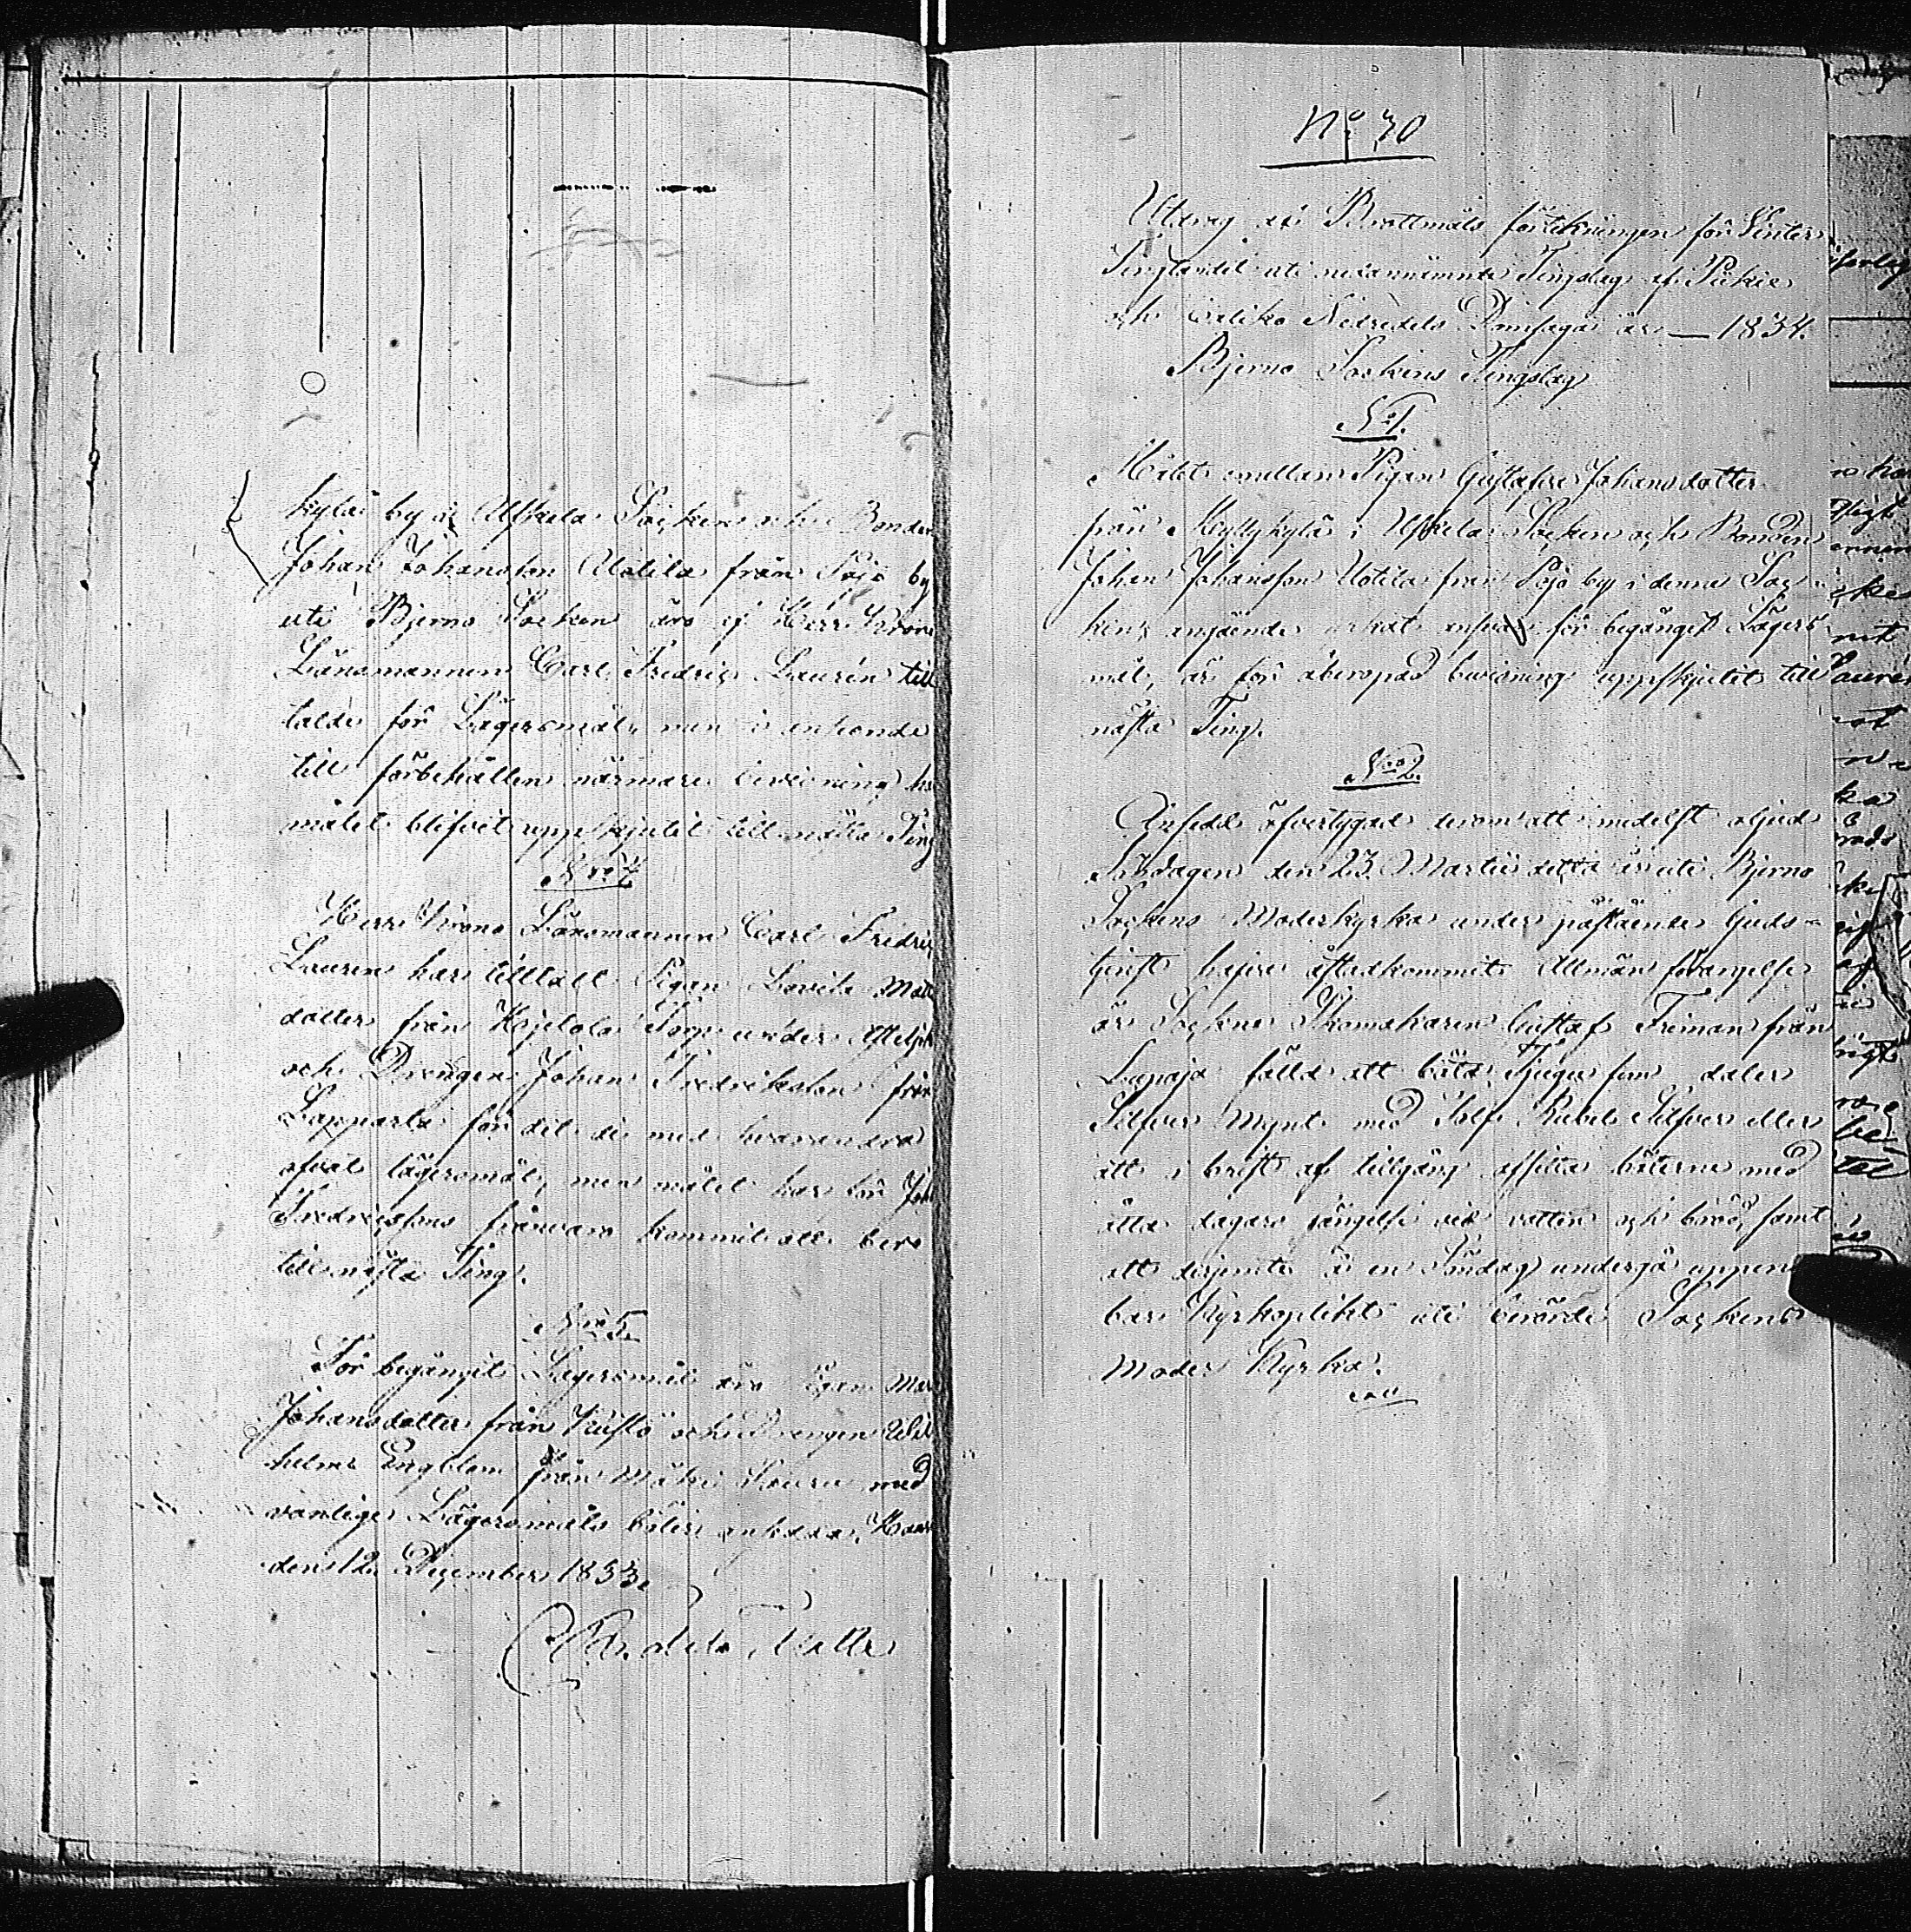 kylä by i Uskela Socken och Bonden
Johan Johansson Uotila från Pojo by
uti Bjerno Socken äro af Herr Krono
Länsmannen Carl Fredric Laurén till
talde för Lägersmål, men i anseende
till förbehållen närmare bevisning har
målet blifvit uppskjutit till nästa Ting
N:o 4.
Herr Krono Länsmannen Carl Fredric
Lauren har tilltalt Pigan Lovisa Matts
dotter från Torp under
och Drängen Johan Fredriksson från
Lapparla för det de med hvarandra
aflat lägersmål, men målet har för Joh
Fredricssons frånvaro kommit att bero
till nästa Ting.
N:o 5.
För begångit Lägersmål äro Pigan Mar
Johansdotter från Kustö och Drengen Wil
helm Engblom från Mäki Lauru med
vanlige Lägersmåls böter ansedda,
den 12 December 1833.
N:o 30
Utdrag af Brottmåls förtekningen för Vinter
Tingtidet uti nedannämnte Tingslag af Pikie
och Haliko Nedredels Domsaga år — 1834.
Bjerno Sockens Tingslag
N:o 1.
Målet emellan Pigan Gustafva Johansdotter
från Kyllykylä i Uskela Socken och Bonden
Johan Johansson Uotila från Pojo by i denna Soc-
ken, angående yrkat ansvar för begånget Lägers
mål, är för åberopad bevisning uppskjutit till
nästa Ting.
N:o 2.
Ansedd öfvertygad derom att medelst oljud
Söndagen den 23 Martii detta år uti Bjerno
Sockens Moderkyrka under påstående Guds-
tjenst hafva åstadkommit Allmän förargelse
är Sockne Skomakaren Gustaf Friman från
Lupaja fälld att böta Tjugu fem daler
Silfver Mynt med Tolf Rubel Silfver eller
att i brist af tillgång afsitta böterna med
åtta dagars fängelse vid vatten och bröd, samt
att derjemte å en Söndag undergå uppen
bar Kyrkoplikt uti berörde Sockens
Moder Kyrka.